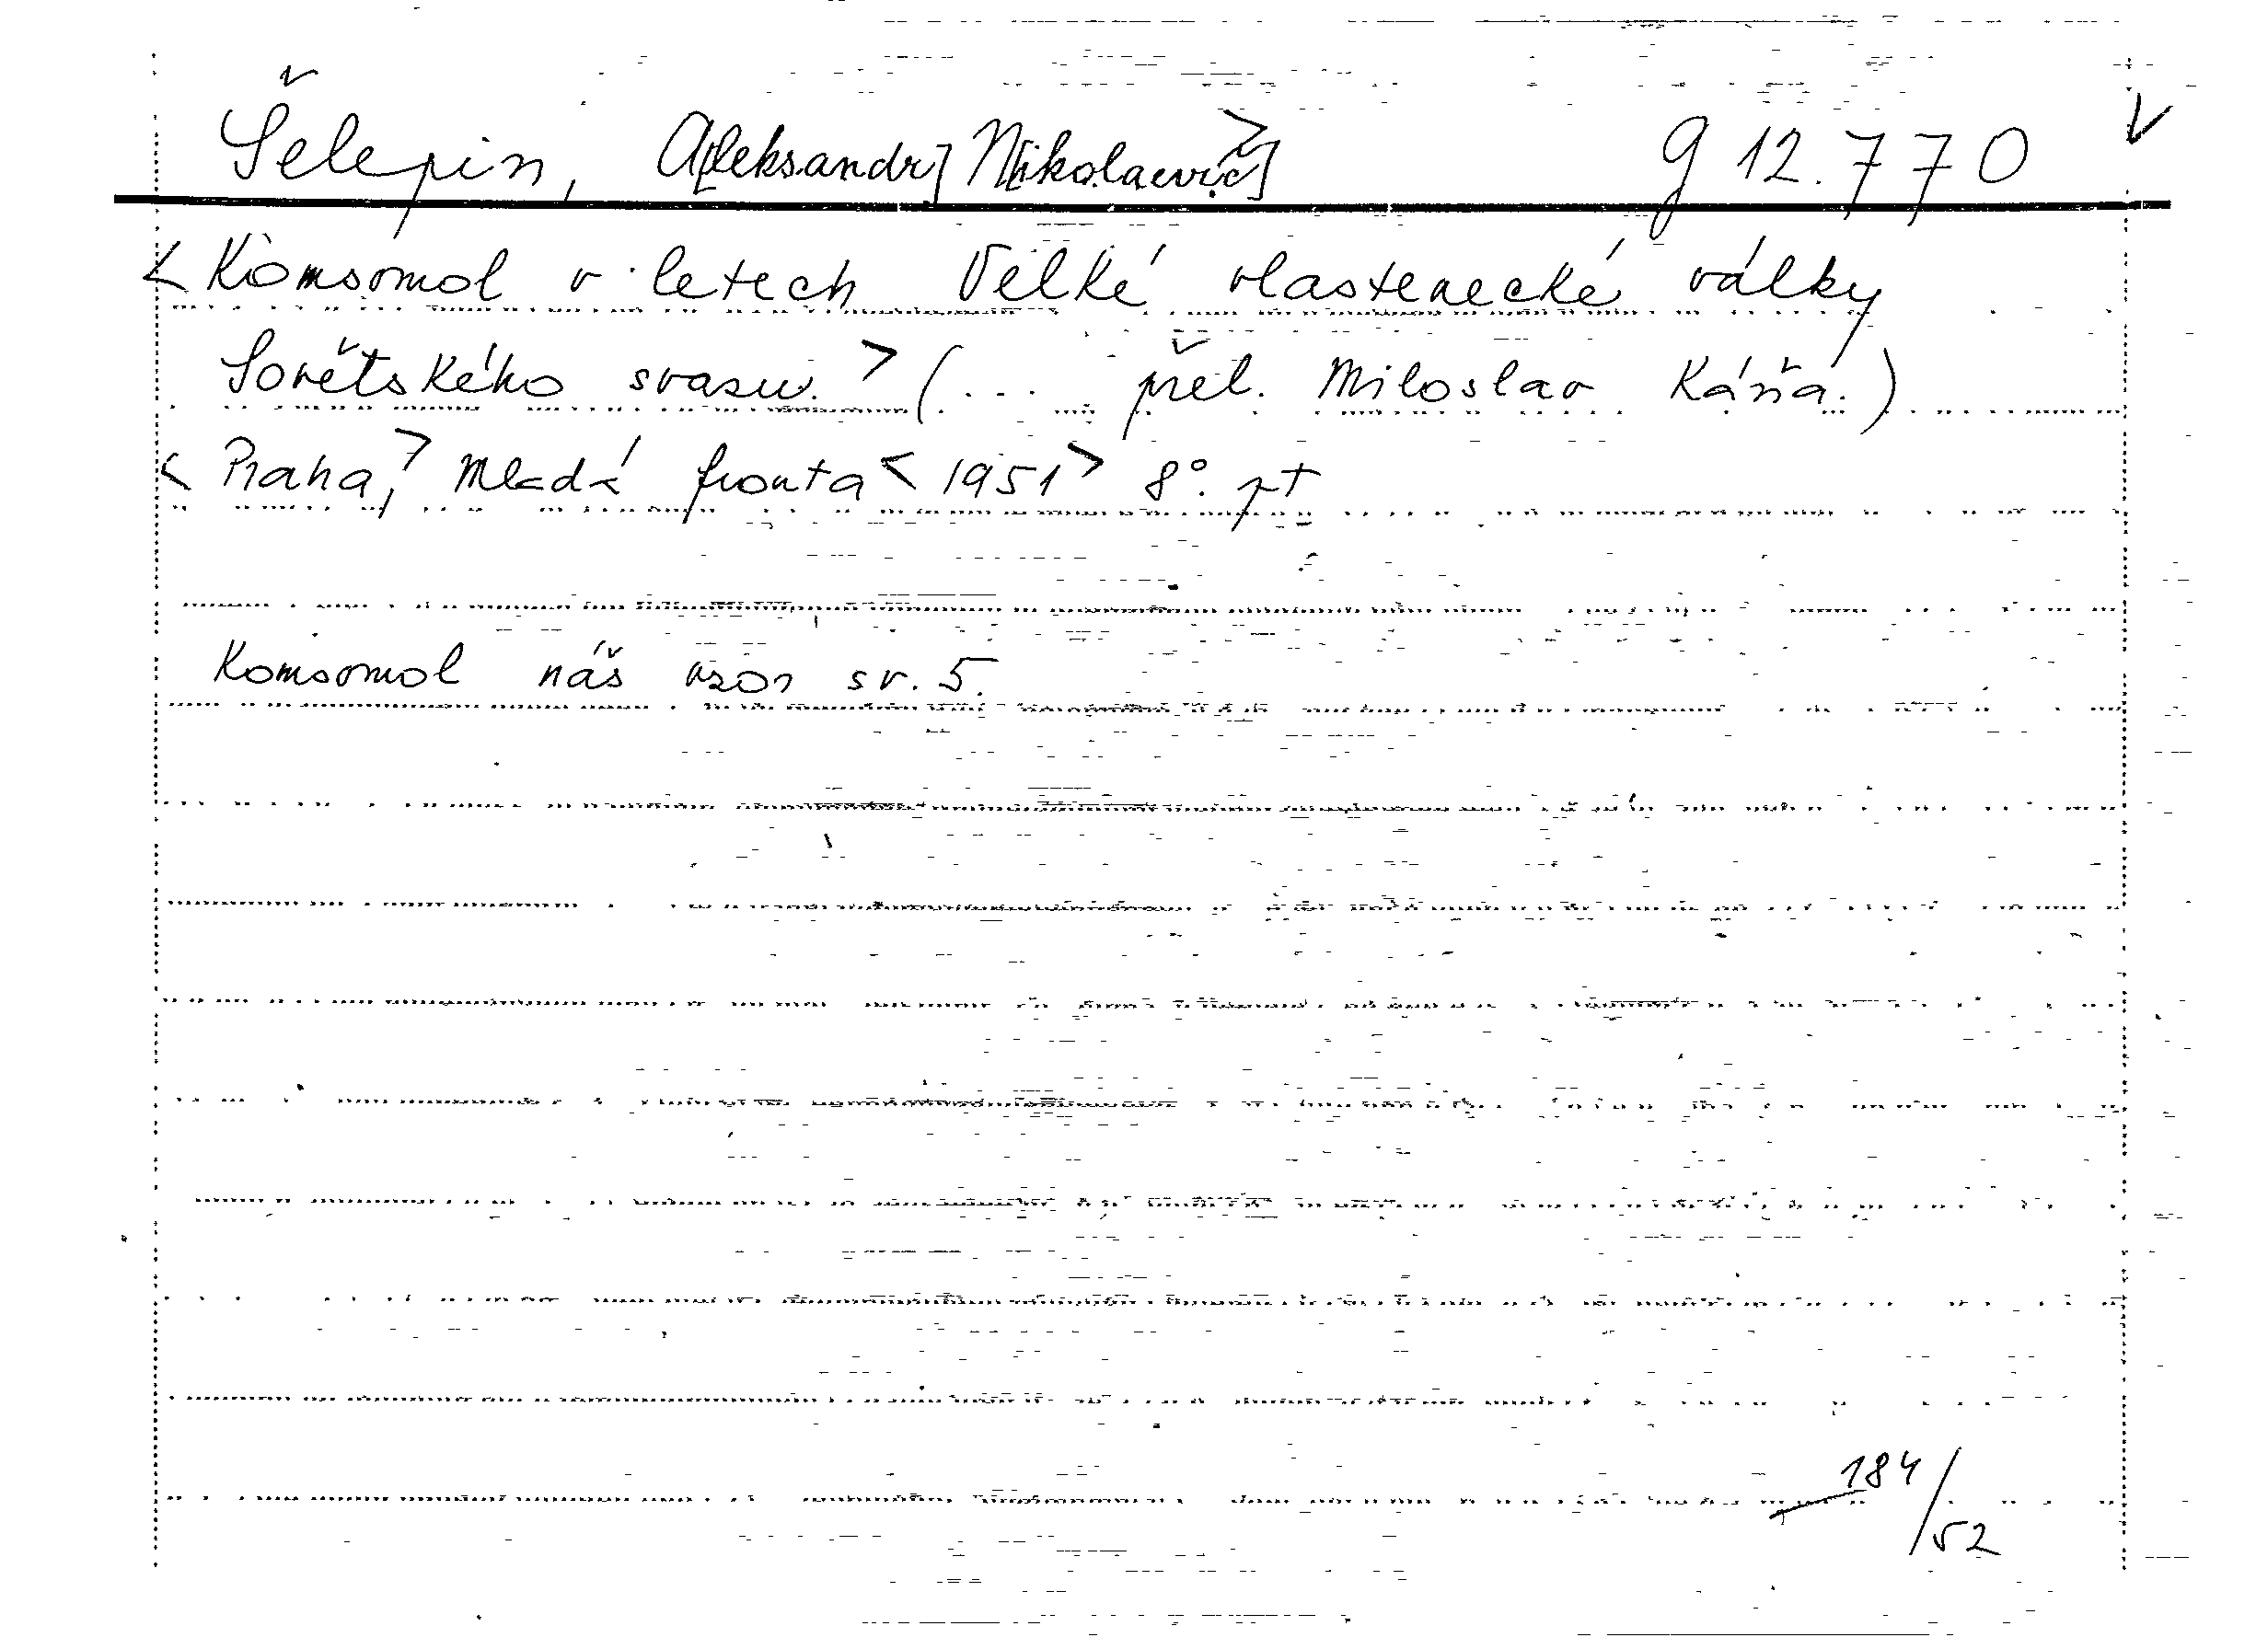 Šelepin, A[leksandr] N[ikolaevič]> g 12.770 v
<Komsomol v letech Velké vlastenecké války
Sovětského svazu.> (... přel. Miloslav Káňa.)
<Praha,> Mladá fronta <1951> 8°. pt
Komsomol náš vzor sv. 5.
184/52